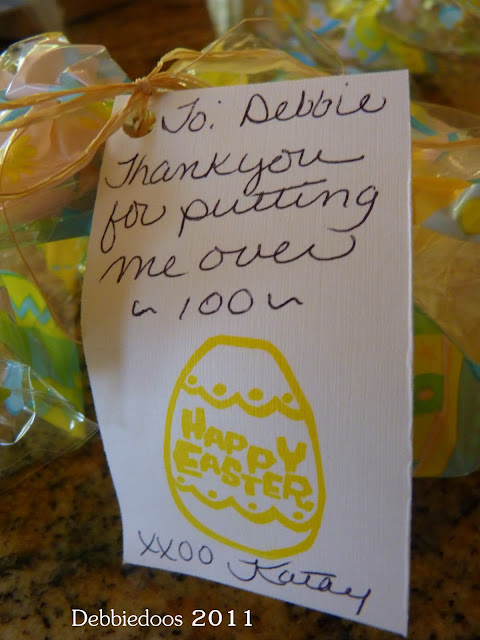 To: Debbie
Thankyou
for putting
me over
~ 100 ~
HAPPY
EASTER
XXOO Katay
Debbiedoos 2011